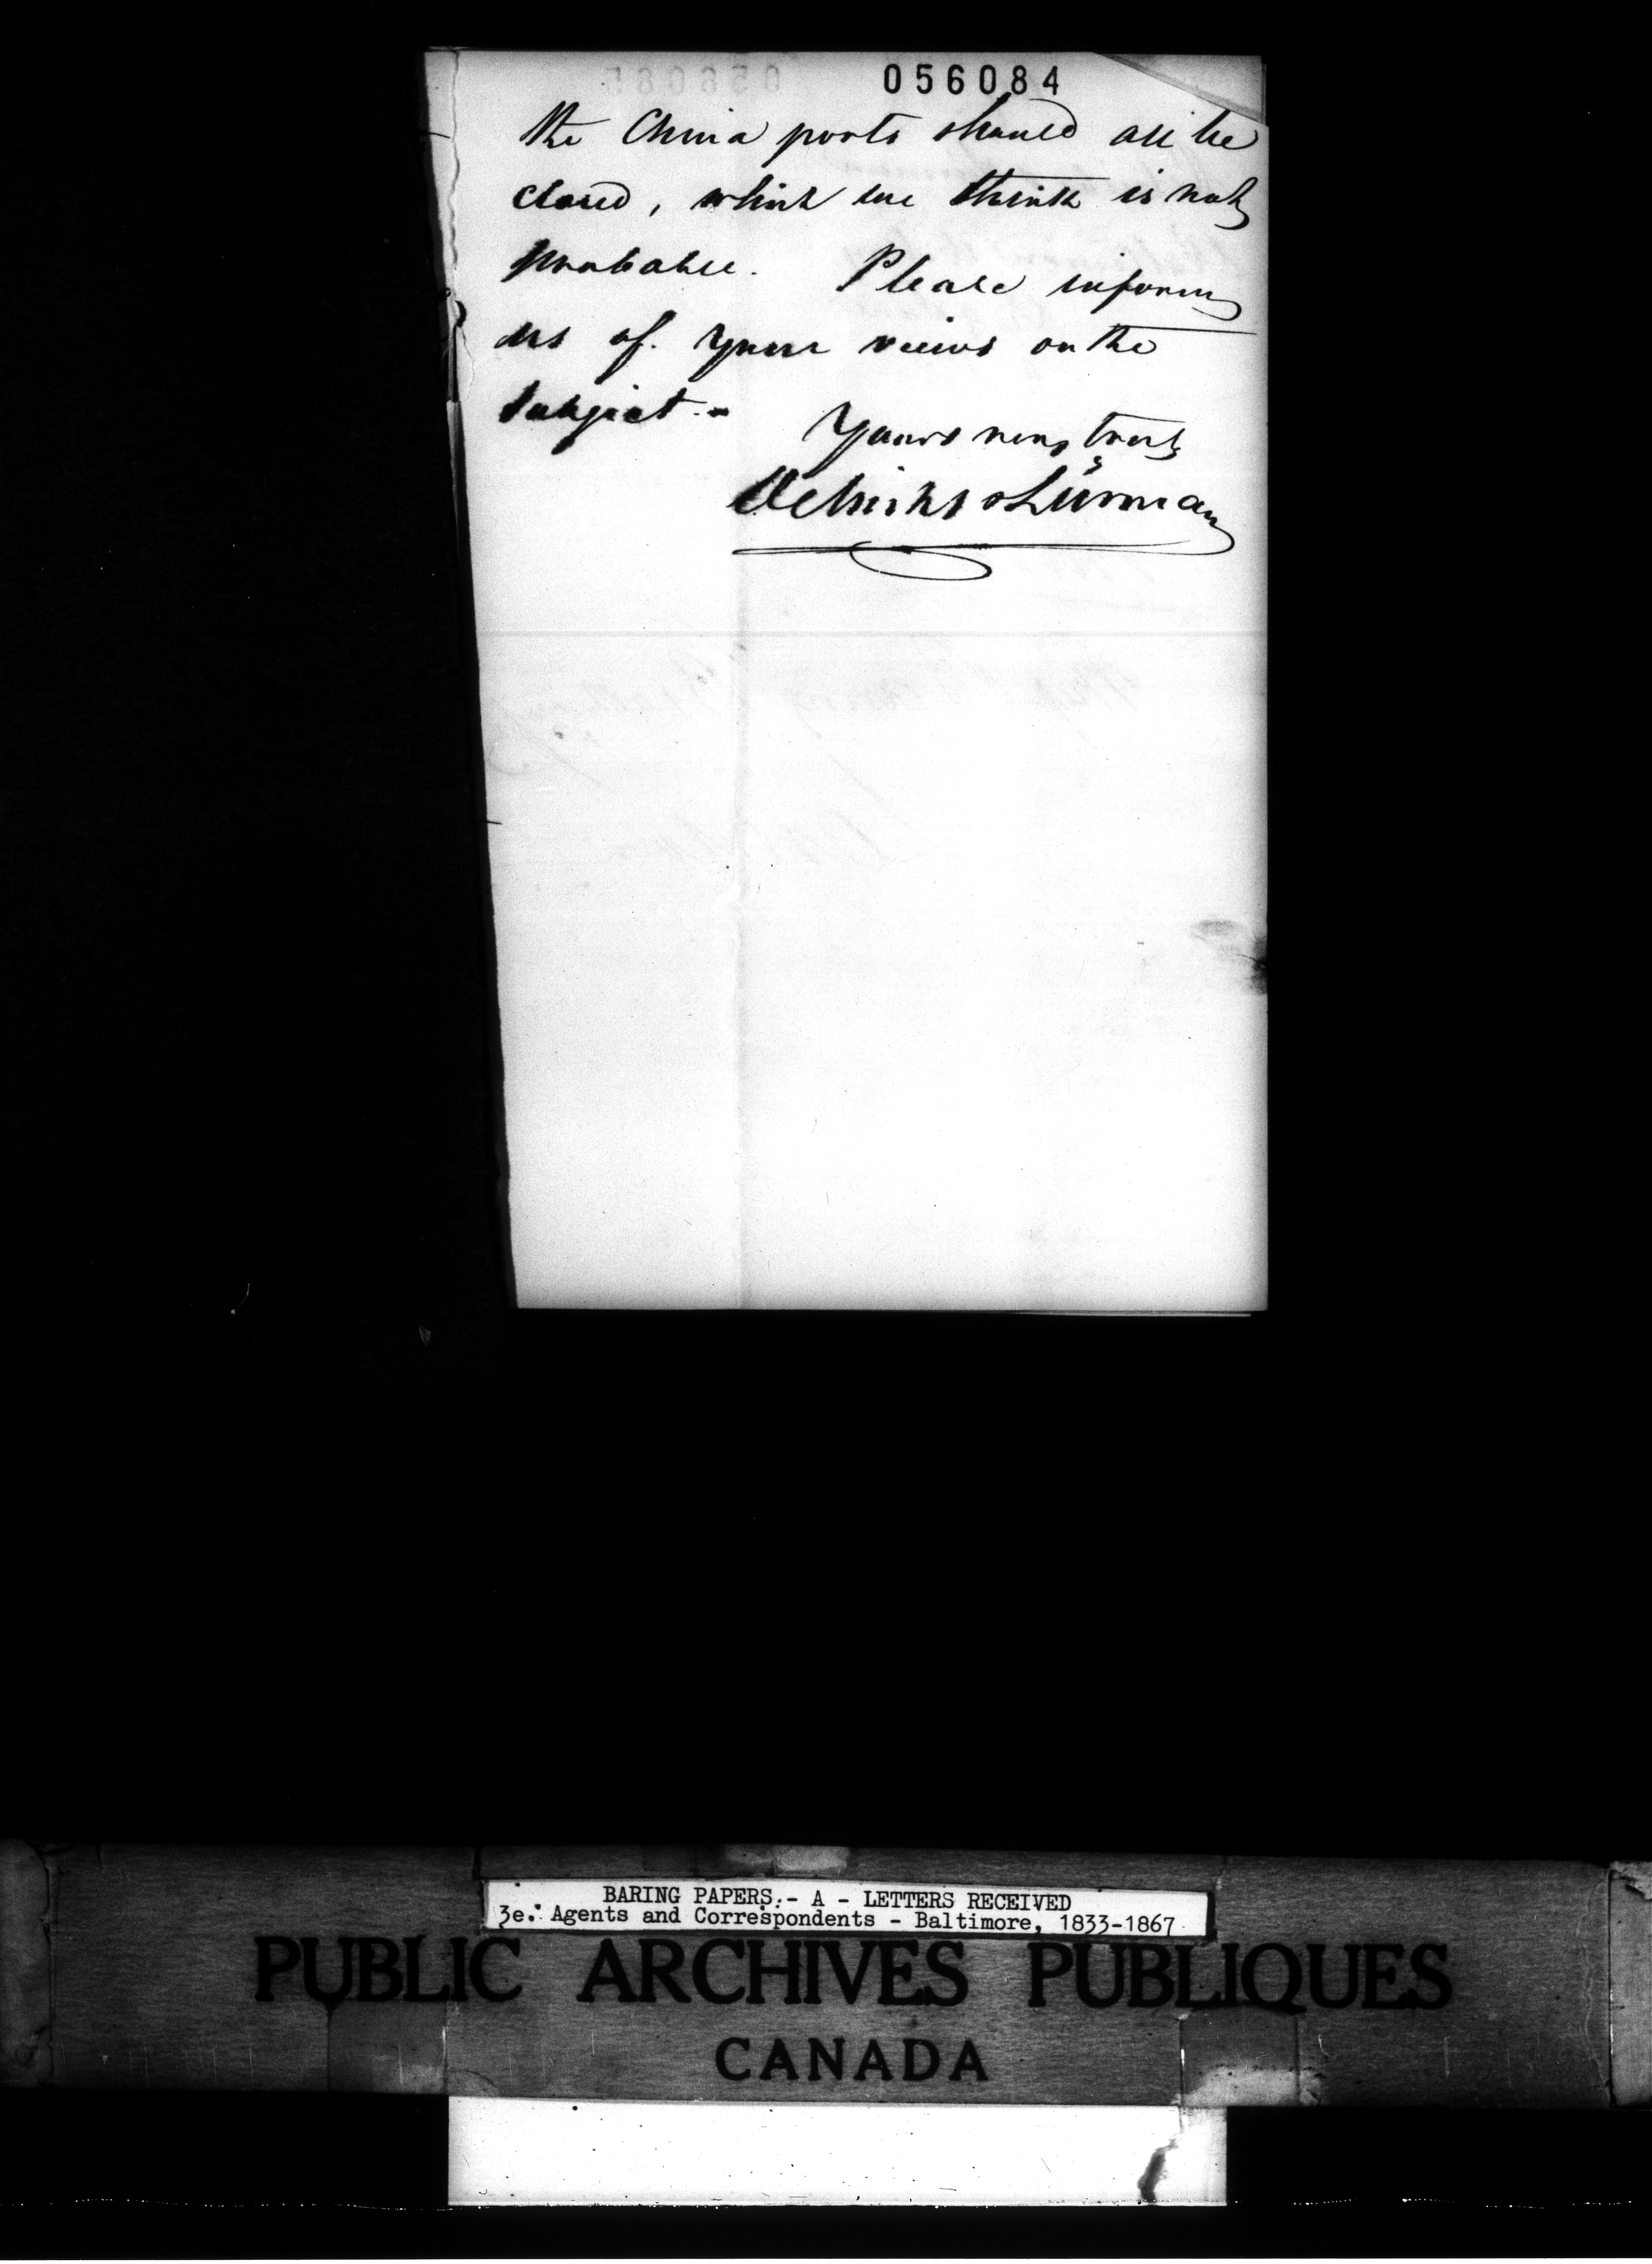 056084
the China ports should all be
closed, which we think is not
probable. Please inform
us of your views on the
subject.-
Yours very truly
Oelrichs & Lürman
BARING PAPERS.- A - LETTERS RECEIVED
3e. Agents and Correspondents - Baltimore, 1833-1867
PUBLIC ARCHIVES PUBLIQUES
CANADA